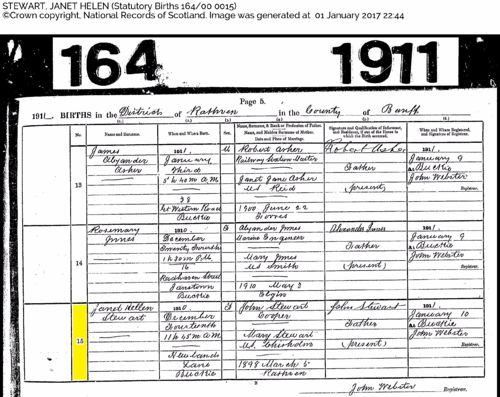 STEWART, JANET HELEN (Statutory Births 164/00 0015)
©Crown copyright, National Records of Scotland. Image was generated at 01 January 2017 22:44
164 1911
Page 5.
1911. BIRTHS in the District of Rathven in the County of Banff
No. Name and Surname. When and Where Born. Sex. Name, Surname, & Rank or Profession of Father. Name, and Maiden Surname of Mother. Date and Place of Marriage. Signature and Qualification of Informant, and Residence, if out of the House in which the Birth occurred. When and Where Registered, and Signature of Registrar.
13
James
Alexander
Asher
1911
January
Third
5h 40m A.M.
38
West Western Road
Buckie
M
Robert Asher
Railway Station Master
Janet Jane Asher
M.S. Reid
1900 June 22
Forres
Robert Asher
Father
(present)
1911
January 9
At Buckie
John Webster
Registrar.
14
Rosemary
Innes
1910
December
Twenty
1h 30m P.M.
16
Street
Ianstown
Buckie
F
Alexander Innes
Marine Engineer
Mary Innes
M.S. Smith
1910 May 3
Elgin
Alexander Innes
Father
(present)
1911
January 9
At Buckie
John Webster
Registrar.
15
Janet Hellen
Stewart
1910
December
Fourteenth
11h 45m A.M.
Newlands
Lane
Buckie
F
John Stewart
Cooper
Mary Stewart
M.S. Chisholm
1898 March 5
Rathven
John Stewart
Father
(present)
1911
January 10
At Buckie
John Webster
Registrar.
John Webster Registrar.